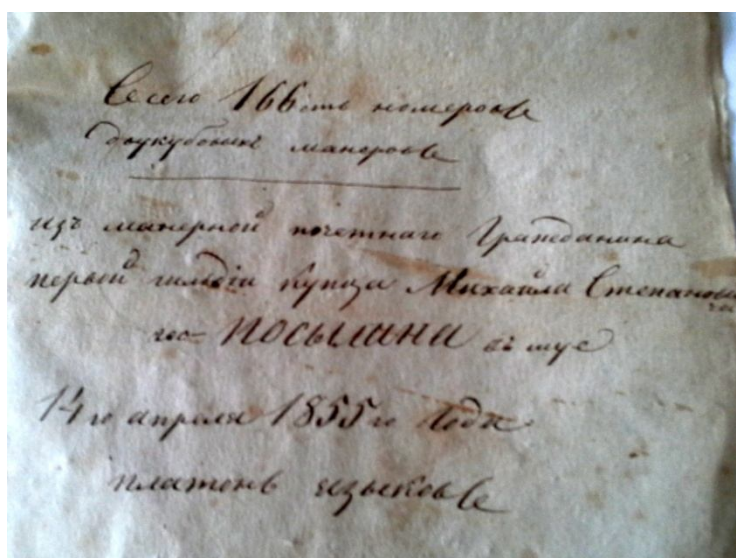 Всего 166ть номеровъ
двукубовыхъ манеровъ
изъ манерной почетнаго Гражданина
первой гильдіи купца Михайла Степанови
ча
го= ПОСЫЛИНА въ шуе
14го апреля 1855го Года
платонъ языковъ